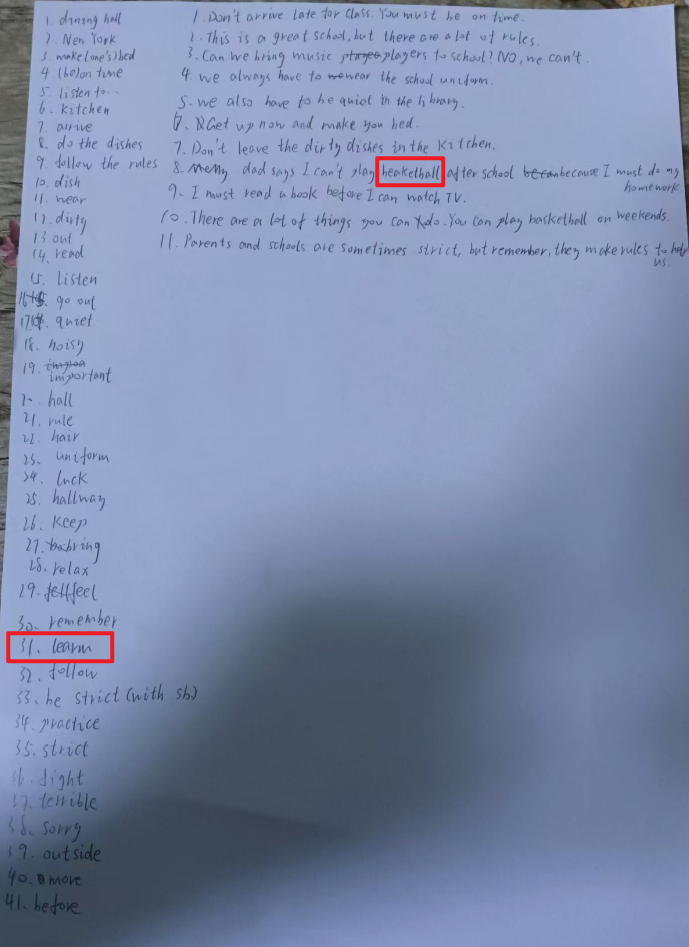 1. dining hall
2. New York
3. make (one's) bed
4. (be) on time
5. listen to...
6. kitchen
7. arrive
8. do the dishes
9. follow the rules
10. dish
11. wear
12. dirty
13 out
14. read
15. listen
16. go out
17. quiet
18. noisy
19. important
20. hall
21. rule
22. hair
23. uniform
24. luck
25. hallway
26. Keep
27. bring
28. relax
29. feel
30. remember
31. learm
32. follow
33. be strict (with sb)
34. practice
35. strict
36. fight
37. terrible
38. sorry
39. outside
40. more
41. before
1. Don't arrive late for class. You must be on time.
2. This is a great school, but there are a lot of rules.
3. Can we bring music players to school? NO, we can't.
4. we always have to wear the school uniform.
5. we also have to be quiet in the library.
6. Get up now and make you bed.
7. Don't leave the dirty dishes in the kitchen.
8. My dad says I can't play beaketball after school because I must do my
homework
9. I must read a book before I can watch TV.
10. There are a lot of things you can do. You can play basketball on weekends.
11. Parents and schools are sometimes strict, but remember, they make rules to help
us.